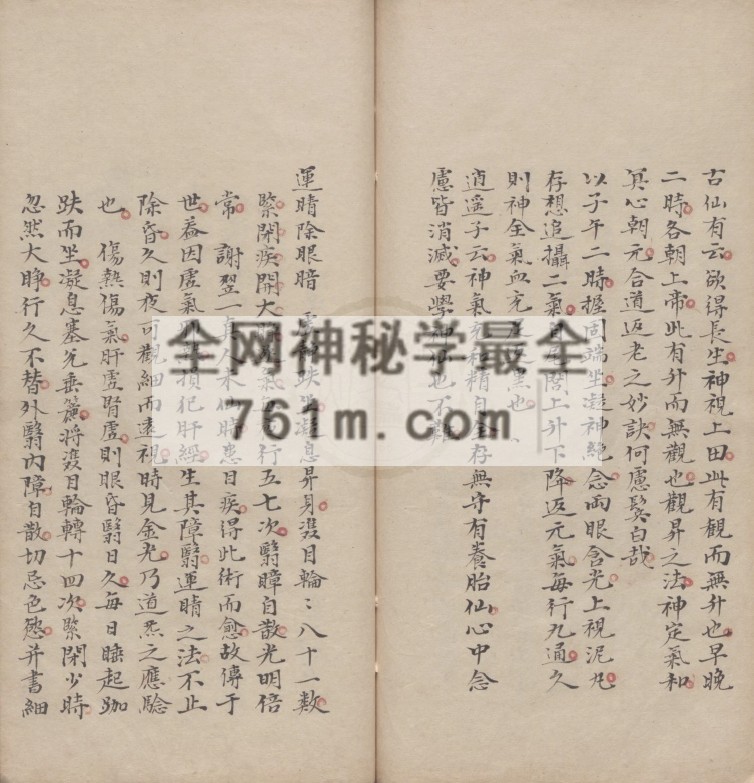 古仙有云欲得長生神視上田此有觀而無升也早晚
二時各朝上帝此有升而無觀也觀昇之法神定氣和
冥心朝元合道返老之妙訣何慮鬓白哉
以子午二時握固端坐凝神絶念両眼含光上視泥丸
存想追攝二氣自尾閭上升下降返元氣每行九通久
則神全氣血充黑也
逍遥子云神氣精自全存無守有養胎仙心中念
慮皆消滅要學也不難
運睛除眼暗 趺坐凝息昇身雙目輪〻八十一数
緊閉疾開大氣行五七次翳瞕自散光明倍
常 謝翌一真人未仙時患目疾得此術而愈故傳于
世葢因虚氣損犯肝經生其障翳運睛之法不止
除昏久則夜可觀細而遠視時見金光乃道炁之應驗
也 傷熱傷氣肝虚腎虚則眼昏翳日久每日睡起跏
趺而坐凝息塞兑垂簾將雙目輪轉十四次緊閉少時
忽然大睁行久不替外翳内障自散切忌色慾并書細
全网神秘学最全
761m.com